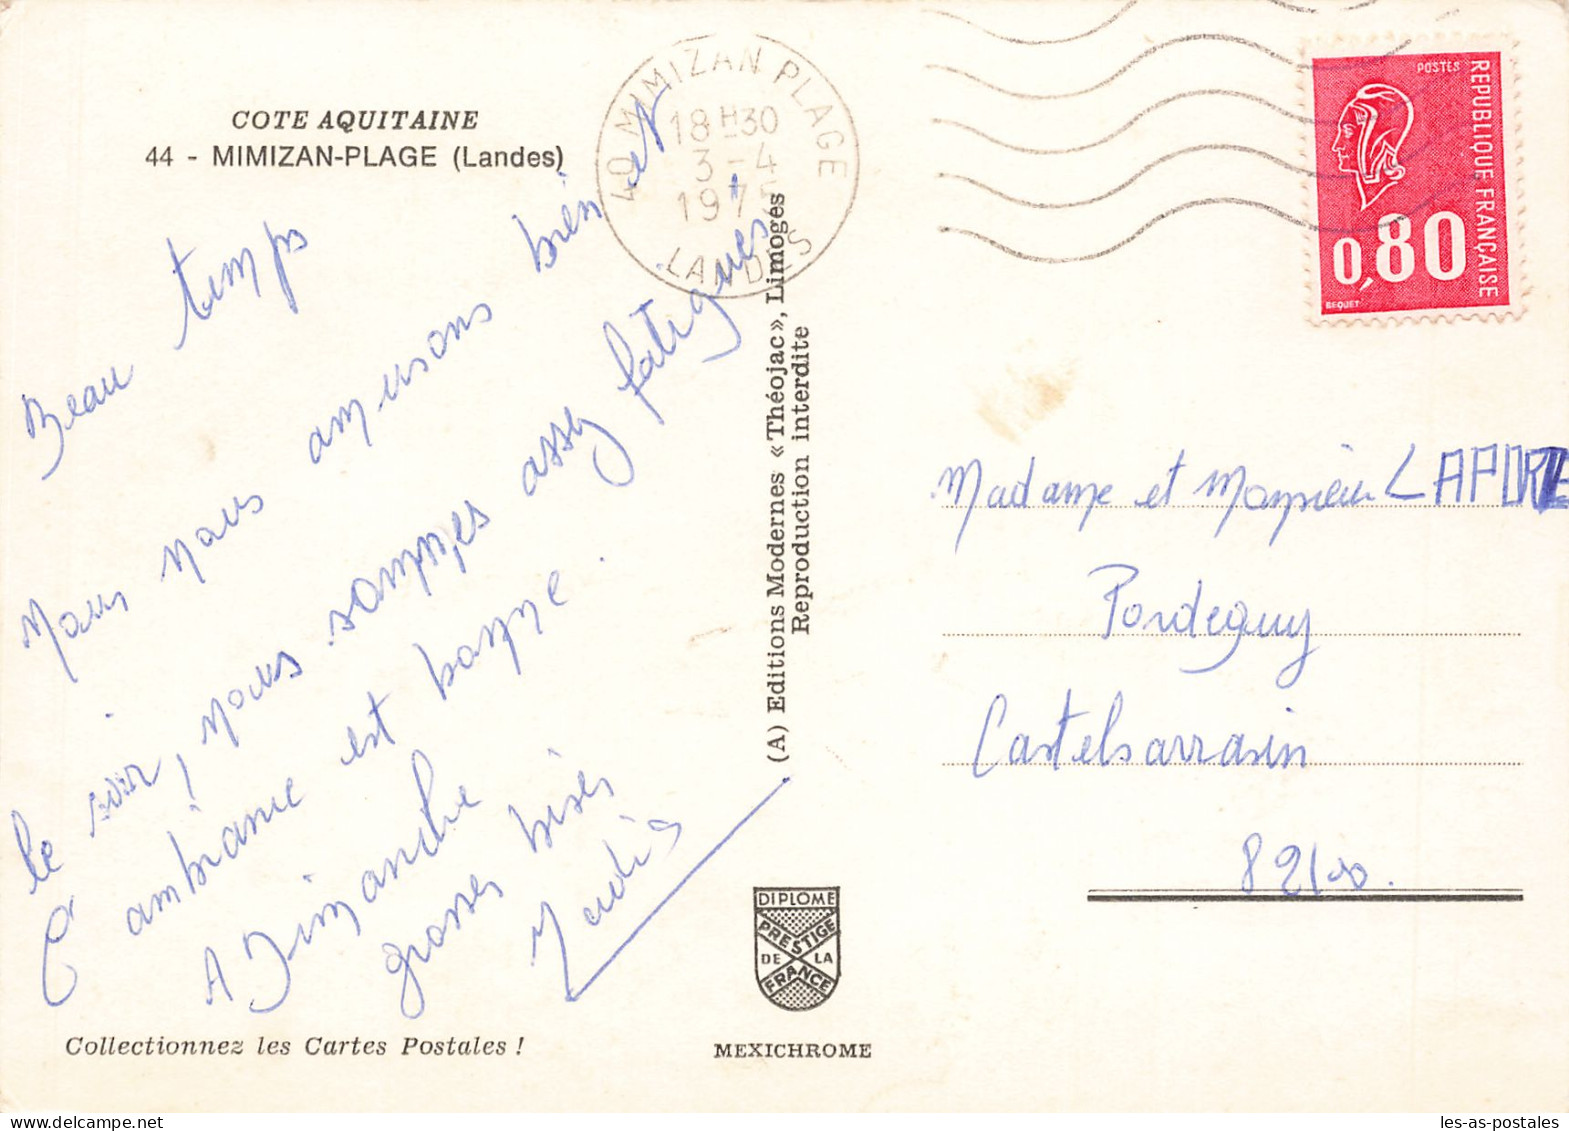 COTE AQUITAINE
44 - MIMIZAN-PLAGE (Landes)
Beau temps
Nous nous amusons bien et
le soir, nous sommes assez fatigués
L'ambiance est bonne.
A Dimanche
grosses bises
Collectionnez les Cartes Postales !
40 MIMIZAN PLAGE
18H30
3 - 4
197
LANDES
(A) Editions Modernes « Théojac », Limoges
Reproduction interdite
DIPLOME
PRESTIGE
DE LA
FRANCE
MEXICHROME
POSTES
REPUBLIQUE FRANÇAISE
0,80
BEQUET
Madame et Monsieur LAPORTE
Pordeguy
Castelsarrasin
82100.
les-as-postales